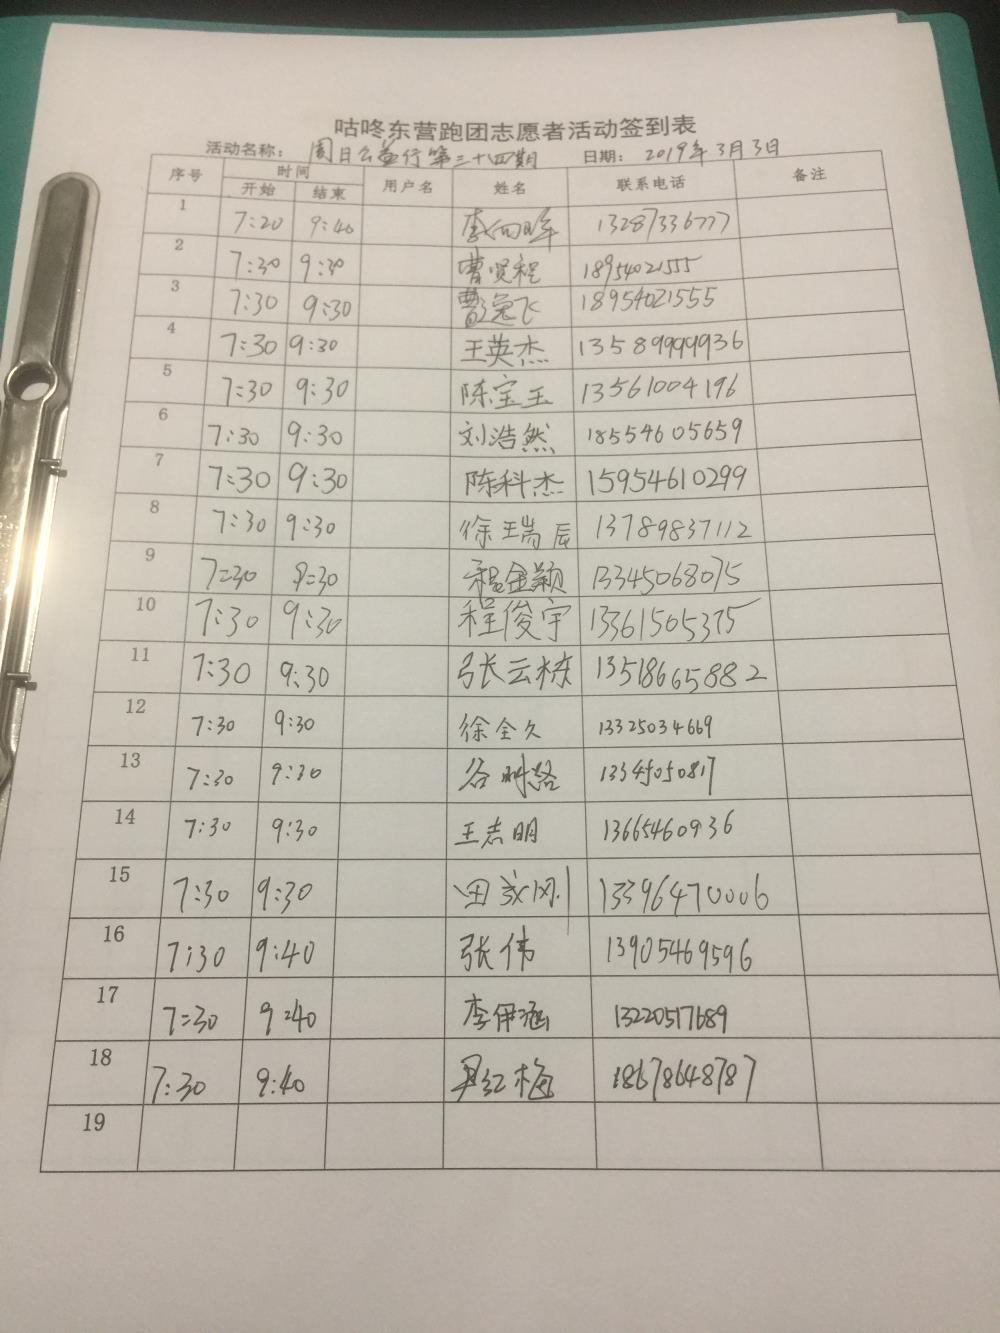 咕咚东营跑团志愿者活动签到表
活动名称： 周日公益行第三十四期 日期： 2019年3月3日
序号 时间 用户名 姓名 联系电话 备注
开始 结束
1 7:20 9:40 13287336777
2 7:30 9:30 曹贤程 18954021555
3 7:30 9:30 曹逸飞 18954021555
4 7:30 9:30 王英杰 13589999936
5 7:30 9:30 陈宝玉 13561004196
6 7:30 9:30 刘浩然 18554605659
7 7:30 9:30 陈科杰 15954610299
8 7:30 9:30 徐瑞辰 13789837112
9 7:30 9:30 程金颖 13345068075
10 7:30 9:30 程俊宇 13361505375
11 7:30 9:30 张云栋 13518665882
12 7:30 9:30 徐全久 13325034669
13 7:30 9:30 13345050817
14 7:30 9:30 王志明 13665460936
15 7:30 9:30 田成刚 13396470006
16 7:30 9:40 张伟 13905469596
17 7:30 9:40 李伊涵 13220517689
18 7:30 9:40 18678648787
19